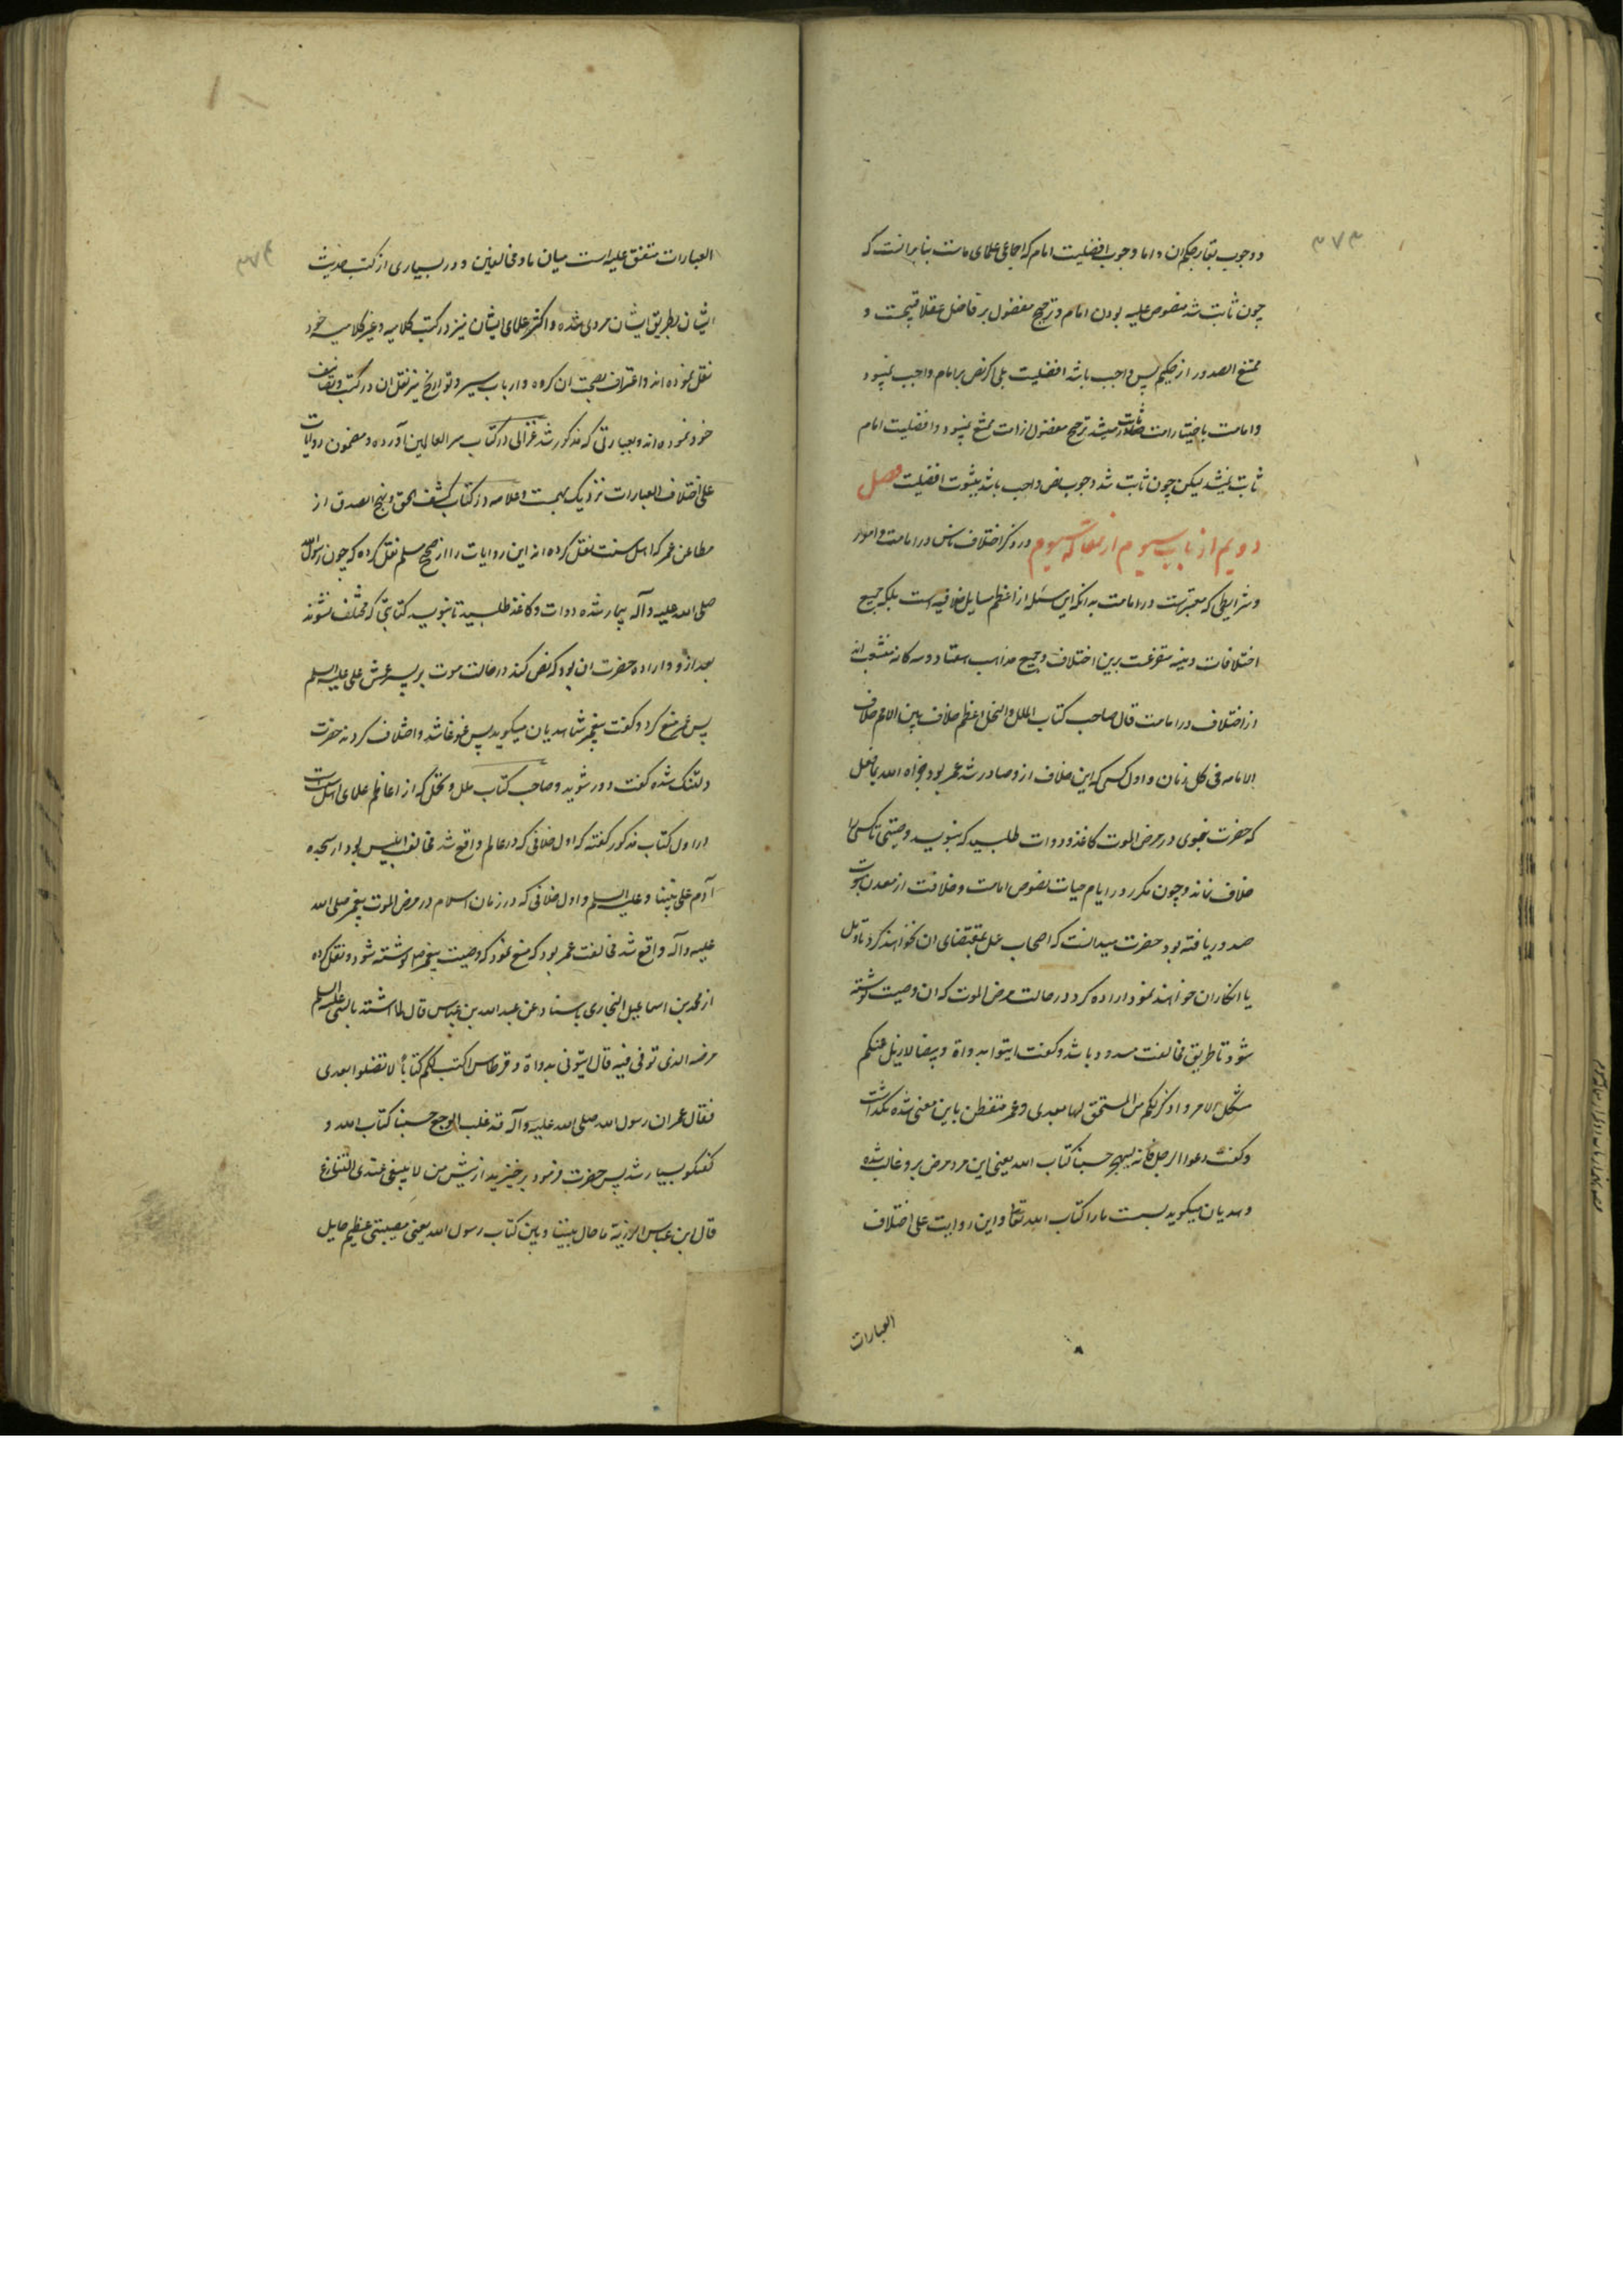 ۳۷۳
و وجوب بقای حکم آن و اما وجوب افضلیت امام که اجماعی علمای ماست بنابرانست که
چون ثابت شد منصوص علیه بودن امام و ترجیح مفضول بر فاضل عقلا قبیحست و
ممتنع الصدور از حکیم پس واجب باشد افضلیت بلی اگر نص بر امام واجب نمیبود
و امامت باختیار امت میشد ترجیح مفضول از امت ممتنع نمیبود و افضلیت امام
ثابت نمیشد لیکن چون ثابت شد وجوب نص واجب باشد ثبوت افضلیت فصل
دویم از باب سیوم از مقاله سیوم در ذکر اختلاف ناس در امامت و امور
و شرایطی که معتبرست در امامت بدانکه این مسئله از اعظم مسایل خلافیه است بلکه جمیع
اختلافات دینیه متفرعست برین اختلاف و جمیع مذاهب هفتاد و سه کانه منشعب اند
از اختلاف در امامت قال صاحب کتاب الملل و النحل اعظم خلاف بین الامة خلاف
الامامه فی کل زمان و اول کسی که این خلاف ازو صادر شد عمر بود جزاه الله بما فعل
که حضرت نبوی در مرض الموت کاغذ و دوات طلبید که بنویسد وصیتی تا کسی را
خلاف نماند و چون مکرر در ایام حیات نصوص امامت و خلافت از معدن نبوت
صدور یافته بود حضرت میدانست که اصحاب عمل بمقتضای ان نخواهند کرد تاویل
یا انکار ان خواهند نمود اراده کرد در حالت مرض الموت که ان وصیت نوشته
شود تا طریق مخالفت مسدود باشد و کفت ایتوا بدواة و بیضا لازیل عنکم
مشکل الامر و اذکر لکم من المستحق لها بعدی و عمر متفطن باین معنی شده نکذاشت
و کفت دعوا الرجل فانه لیهجر حسبنا کتاب الله یعنی این مرد مرض برو غالب شده
و هذیان میکوید بسست ما را کتاب الله تعالی و این روایت علی اختلاف
العبارات
۳۷۴
العبارات متفق علیه است میان ما و مخالفین و در بسیاری از کتب حدیث
ایشان بطریق ایشان مروی شده و اکثر علمای ایشان نیز در کتب کلامیه و غیر کلامیه خود
نقل نموده اند و اعتراف بصحت ان کرده و ارباب سیر و تواریخ نیز نقل ان در کتب و تصانیف
خود نموده اند و بعبارتی که مذکور شد غزالی در کتاب سر العالمین آورده و مضمون روایات
علی اختلاف العبارات نزدیک بهمست و علامه در کتاب کشف الحق و نهج الصدق از
مطاعن عمر که اهل سنت نقل کرده اند این روایات را از صحیح مسلم نقل کرده که چون رسول الله
صلی الله علیه و آله بیمار شده دوات و کاغذ طلبید تا بنویسد کتابتی که مختلف نشوند
بعد ازو و اراده حضرت ان بود که نص کند در حالت موت بر پسر عمش علی علیه السلم
پس عمر منع کرد و کفت پیغمبر شما هذیان میکوید پس غوغا شد و اختلاف کردند حضرت
دلتنک شده کفت دور شوید و صاحب کتاب ملل و نحل که از اعاظم علمای اهل سنت است
در اول کتاب مذکور کفته که اول خلافی که در عالم واقع شد مخالفت ابلیس بود از سجده
آدم علی نبینا و علیه السلم و اول خلافی که در زمان اسلام در مرض الموت پیغمبر صلی الله
علیه و آله واقع شد مخالفت عمر بود که منع نمود که وصیت پیغمبر ص نوشته شود و نقل کرده
از محمد بن اسماعیل البخاری باسناده عن عبد الله بن عباس قال لما اشتد بالنبی علیه السلم
مرضه الذی توفی فیه قال ایتونی بدواة و قرطاس اکتب لکم کتابا لا تضلوا بعدی
فقال عمر ان رسول الله صلی الله علیه و آله قد غلب الوجع حسبنا کتاب الله و
کفتکو بسیار شد پس حضرت فرمود برخیزید از پیش من لا ینبغی عندی التنازع
قال ابن عباس الرزیة ما حال بیننا و بین کتاب رسول الله یعنی مصیبتی عظیم حایل